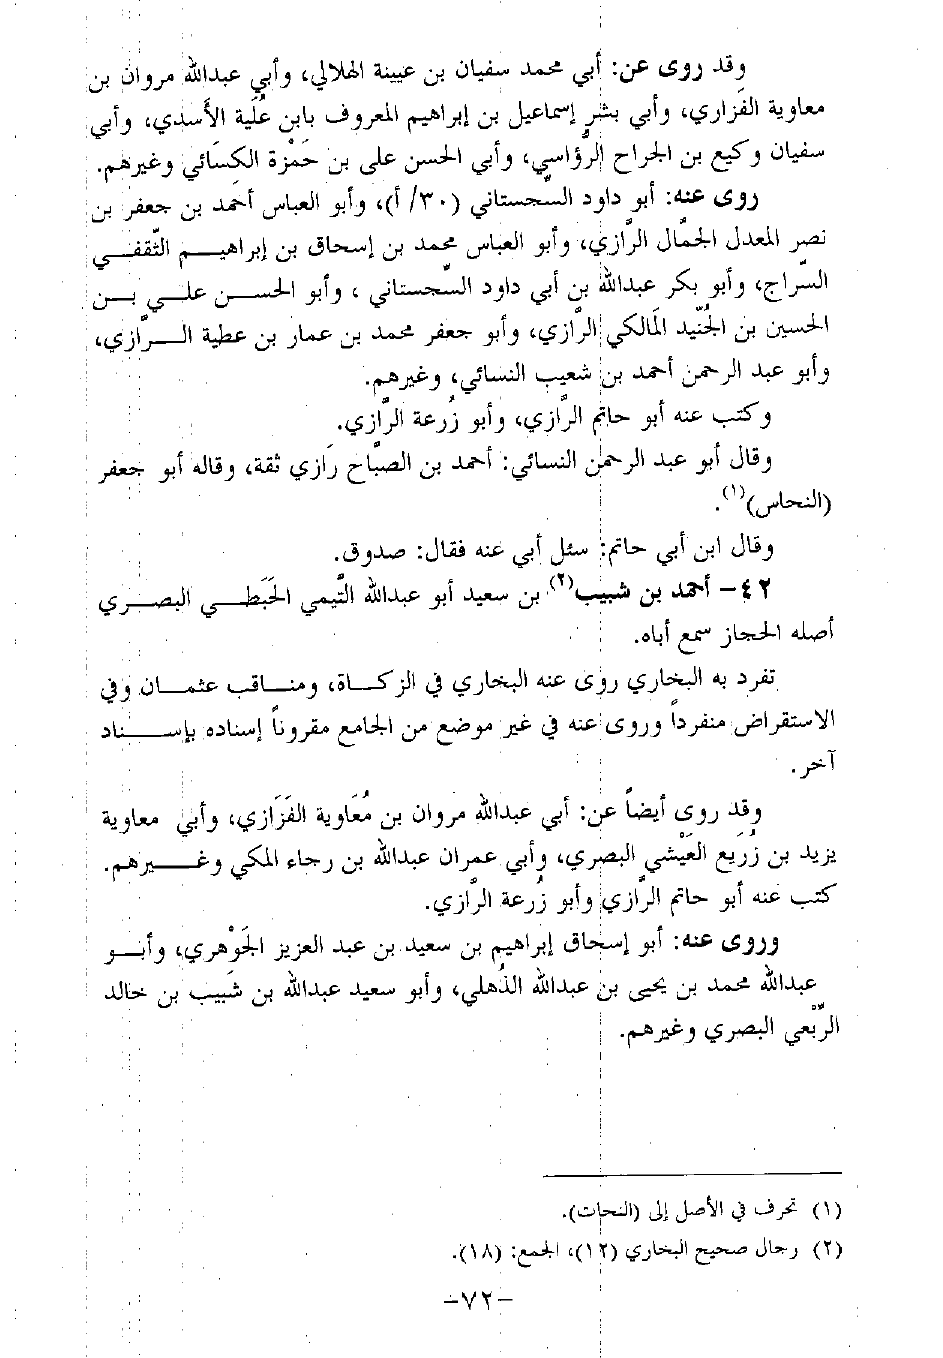 وقد روى عن: أبي محمد سفيان بن عيينة الهلالي، وأبي عبدالله مروان بن
معاوية الفَزاري، وأبي بشر إسماعيل بن إبراهيم المعروف بابن عُلَية الأَسدي، وأبي
سفيان وكيع بن الجراح الرُّؤاسي، وأبي الحسن على بن حَمْزة الكسَائي وغيرهم.
روى عنه: أبو داود السِّجستاني (٣٠/ أ)، وأبو العباس أحمَد بن جعفر بن
نصر المعدل الجمَّال الرَّازي، وأبو العباس محمد بن إسحاق بن إبراهيم الثَّقفي
السرَّاج، وأبو بكر عبدالله بن أبي داود السِّجستاني ، وأبو الحسن علي بن
الحسين بن الجُنَيد المَالكي الرَّازي، وأبو جعفر محمد بن عمار بن عطية الرَّازي،
وأبو عبد الرحمن أحمد بن شعيب النسائي، وغيرهم.
وكتب عنه أبو حاتم الرَّازي، وأبو زُرعة الرَّازي.
وقال أبو عبد الرحمن النسائي: أحمد بن الصبَّاح رَازي ثقة، وقاله أبو جعفر
(النحاس)(١).
وقال ابن أبي حاتم: سئل أبي عنه فقال: صدوق.
٤٢- أحمد بن شبيب(٢) بن سعيد أبو عبدالله التَّيمي الحَبَطي البصري
أصله الحجاز سمع أباه.
تفرد به البخاري روى عنه البخاري في الزكاة، ومناقب عثمان وفي
الاستقراض منفرداً وروى عنه في غير موضع من الجامع مقروناً إسناده بإسناد
آخر.
وقد روى أيضاً عن: أبي عبدالله مروان بن مُعَاوية الفَزَازي، وأبي معاوية
يزيد بن زُرَيع العَيْشي البصري، وأبي عمران عبدالله بن رجاء المكي وغيرهم.
كتب عنه أبو حاتم الرَّازي وأبو زُرعة الرَّازي.
وروى عنه: أبو إسحاق إبراهيم بن سعيد بن عبد العزيز الجَوْهري، وأبو
عبدالله محمد بن يحيى بن عبدالله الذُهلي، وأبو سعيد عبدالله بن شَبيب بن خالد
الرَّبْعي البصري وغيرهم.
(١) تحرف في الأصل إلى (النحات).
(٢) رجال صحيح البخاري (١٢)، الجمع: (١٨).
-٧٢-